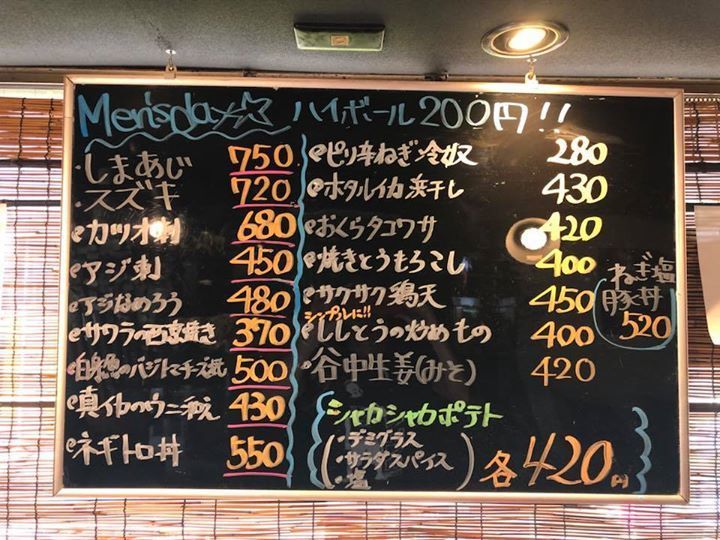 Men'sday☆ ハイボール200円!!
・しまあじ 750
・スズキ 720
カツオ刺 680
アジ刺 450
アジなめろう 480
サワラの西京焼き 390
白身魚のバジトマチーズ焼 500
真イカのウニ和え 430
ネギトロ丼 550
ピリ辛ねぎ冷奴 280
ホタルイカ浜干し 430
おくらタコワサ 420
焼きとうもろこし 400
サクサク鶏天 450
シンプルに!!
ししとうの炒めもの 400
谷中生姜(みそ) 420
ねぎ塩
豚丼
520
シャカシャカポテト
・デミグラス
・サラダスパイス
・塩
各420円